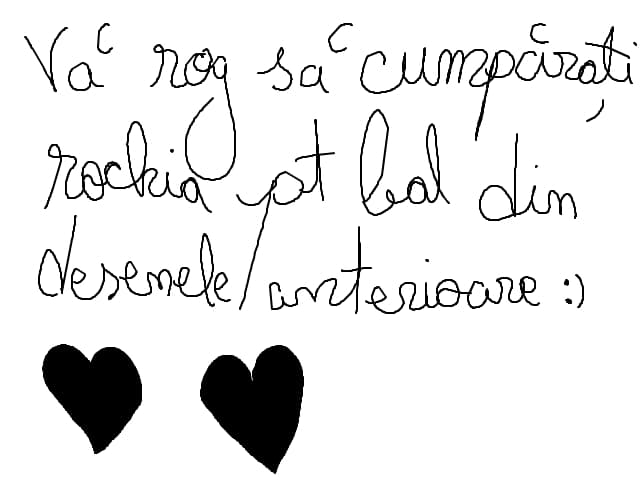 Vă rog să cumpărați
rochia pt bal din
desenele anterioare :)